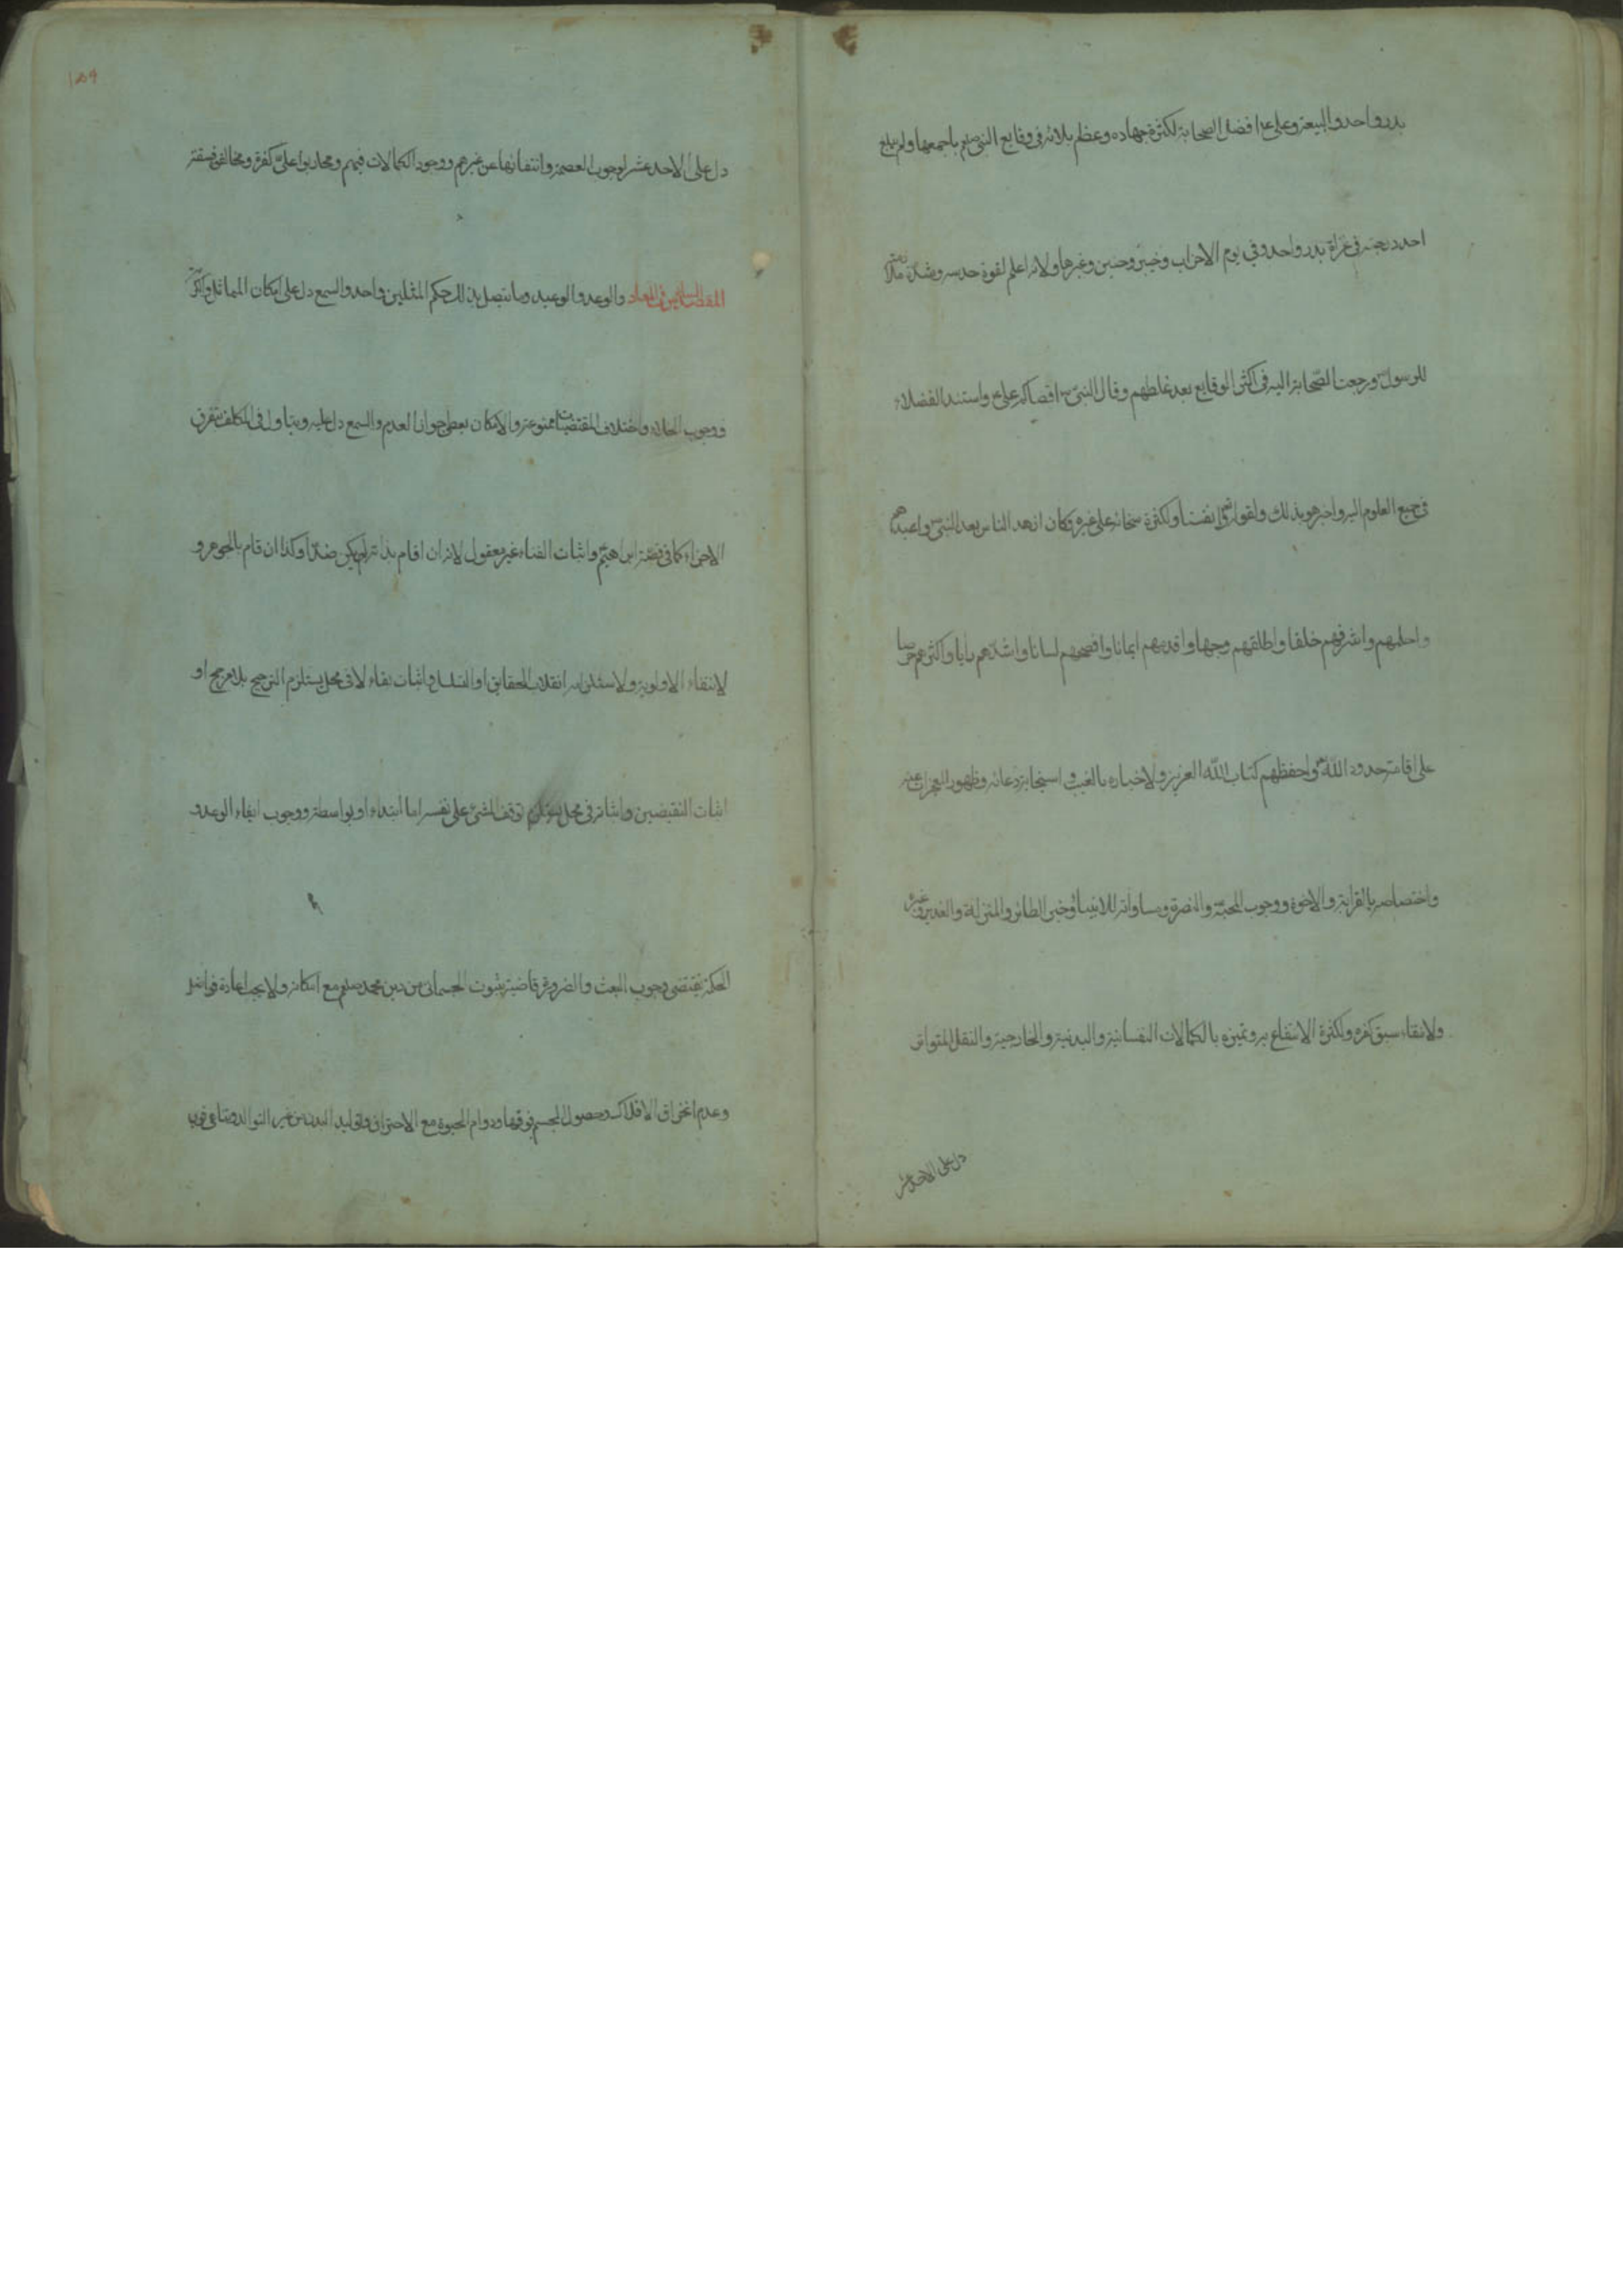 بدر واحد والبيعة وعلى ع افضل الصحابة لكثرة جهاده وعظم بلائه فى وقايع النبى صلعم باجمعها ولم يبلغ
احد درجته فى غزاة بدر واحد وفى يوم الاحزاب وخيبر وحنين وغيرها ولانه اعلم لقوة حدسه وشدة ملازمته
للرسول ص ورجعت الصحابة اليه فى اكثر الوقايع بعد غلطهم وقال النبى ص اقضاكم على ع واستند الفضلاء
فى جميع العلوم اليه واخبر هو بذلك ولقوله تعالى وانفسنا ولكثرة سخائه على غيره وكان ازهد الناس بعد النبى ص واعبدهم
واحلمهم واشرفهم خلقا واطلقهم وجها واقدمهم ايمانا وافصحهم لسانا واشدهم رايا واكثرهم حرصا
على اقامة حدود الله تعالى واحفظهم كتاب الله العزيز ولاخباره بالغيب واستجابة دعائه وظهور المعجزات عنه
واختصاصه بالقرابة والاخوة ووجوب المحبة والنصرة ومساواته للانبياء وخبر الطائر والمنزلة والغدير وغيره
ولانتفاء سبق كفره ولكثرة الانتفاع به وتميزه بالكمالات النفسانية والبدنية والخارجية والنقل المتواتر
دل على الاحد عشر
١٥٩
دل على الاحد عشر لوجوب العصمة وانتفائها عن غيرهم ووجود الكمالات فيهم ومحاربوا على كفرة ومخالفوه فسقة
المقصد السادس فى المعاد والوعد والوعيد وما يتصل بذلك حكم المثلين واحد والسمع دل على امكان المماثل والكرية
ووجوب الخلاء واختلاف المتفقات ممنوعة والامكان يعطى جواز العدم والسمع دل عليه ويتاول فى المكلف بتفرق
الاجزاء كما فى قصة ابرهيم واثبات الفناء غير معقول لانه ان اقام بذاته لم يكن ضدا وكذا ان قام بالجوهر و
لانتفاء الاولوية ولاستلزامه انقلاب الحقايق او التسلسل واثبات بقاء لا فى محل يستلزم الترجيح بلا مرجح او
اثبات النقيضين واثباته فى محل يستلزم توقف الشئ على نفسه اما ابتداء او بواسطة ووجوب ايفاء الوعد و
الحكمة يقتضى وجوب البعث والضرورة قاضية بثبوت الجسمانى من دين محمد صلعم مع امكانه ولا يجب اعادة فواضل
وعدم انخراق الافلاك وحصول الجسم فوقها ودوام الحيوة مع الاحتراق وتوليد البدن من غير التوالد وتناهى قوى